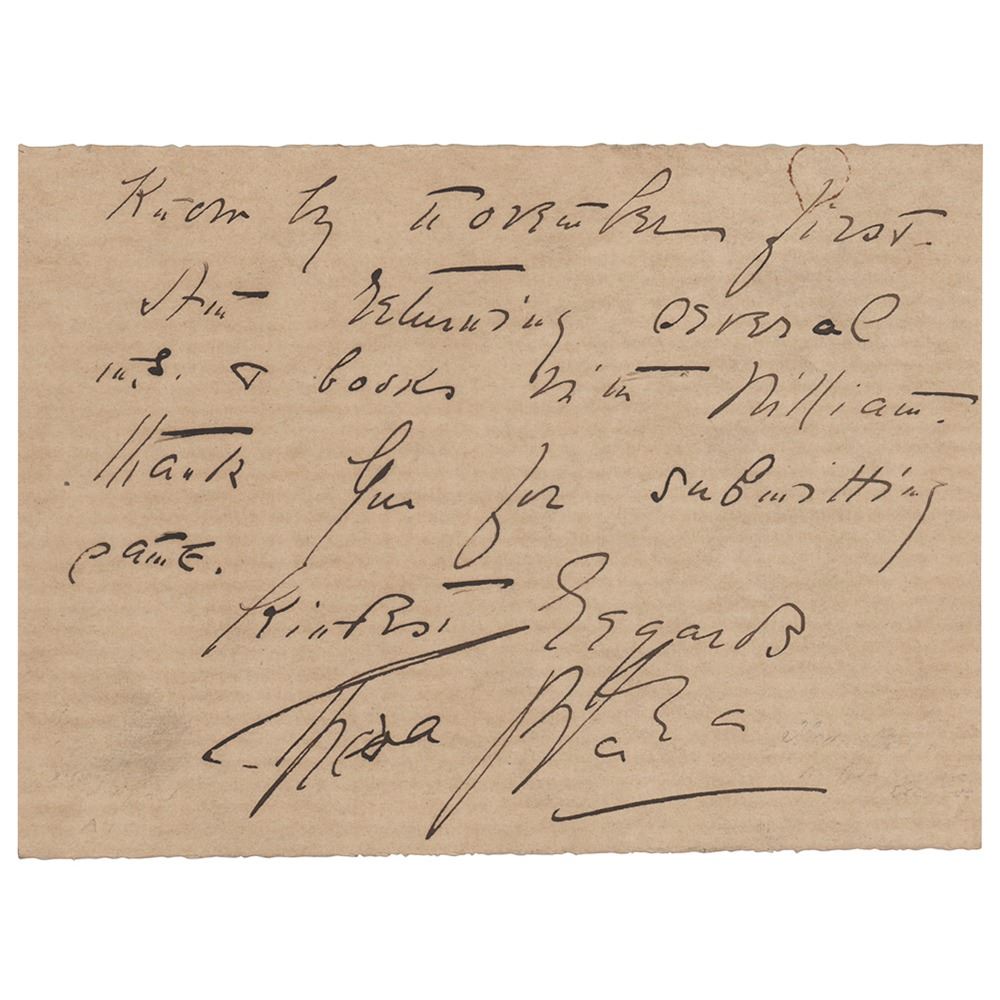 Know by November first.
Am returning several
ms. & books him William.
Thank you for submitting
same.
Kindest Regards
Theda Bara